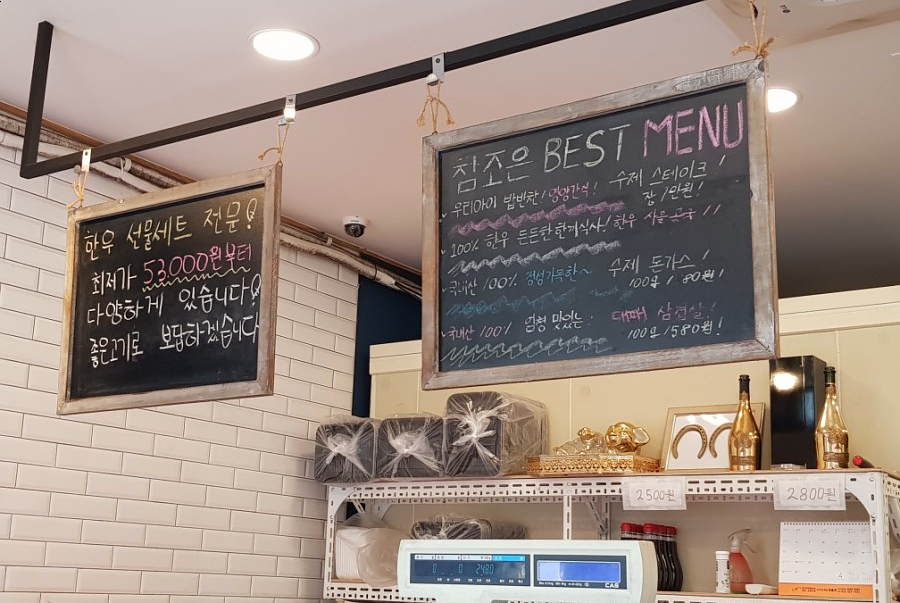 한우 선물세트 전문!
최저가 53,000원부터
다양하게 있습니다!
좋은고기로 보답하겠습니다
참조은 BEST MENU
우리아이 밥반찬! 영양간식! 수제 스테이크!
장 1만원!
100% 한우 든든한 한끼식사! 한우 사골곰국!!
국내산 100% 정성가득한~ 수제 돈가스!
100g
국내산 100% 맛있는 대패 삼겹살!
100g 1580원!
2500원
2800원
0 0 2480
CAS